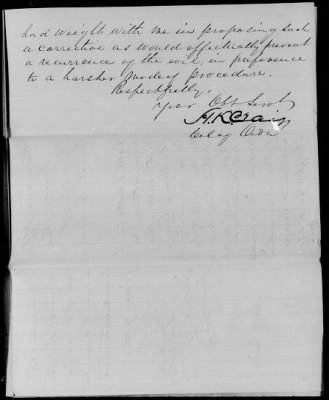 had weight with me in proposing such
a corrective as would effectually prevent
a recurrence of the evil, in preference
to a harsher mode of procedure.
Respectfully,
Your Obt Servt
H.K. Craig
Col of Ord